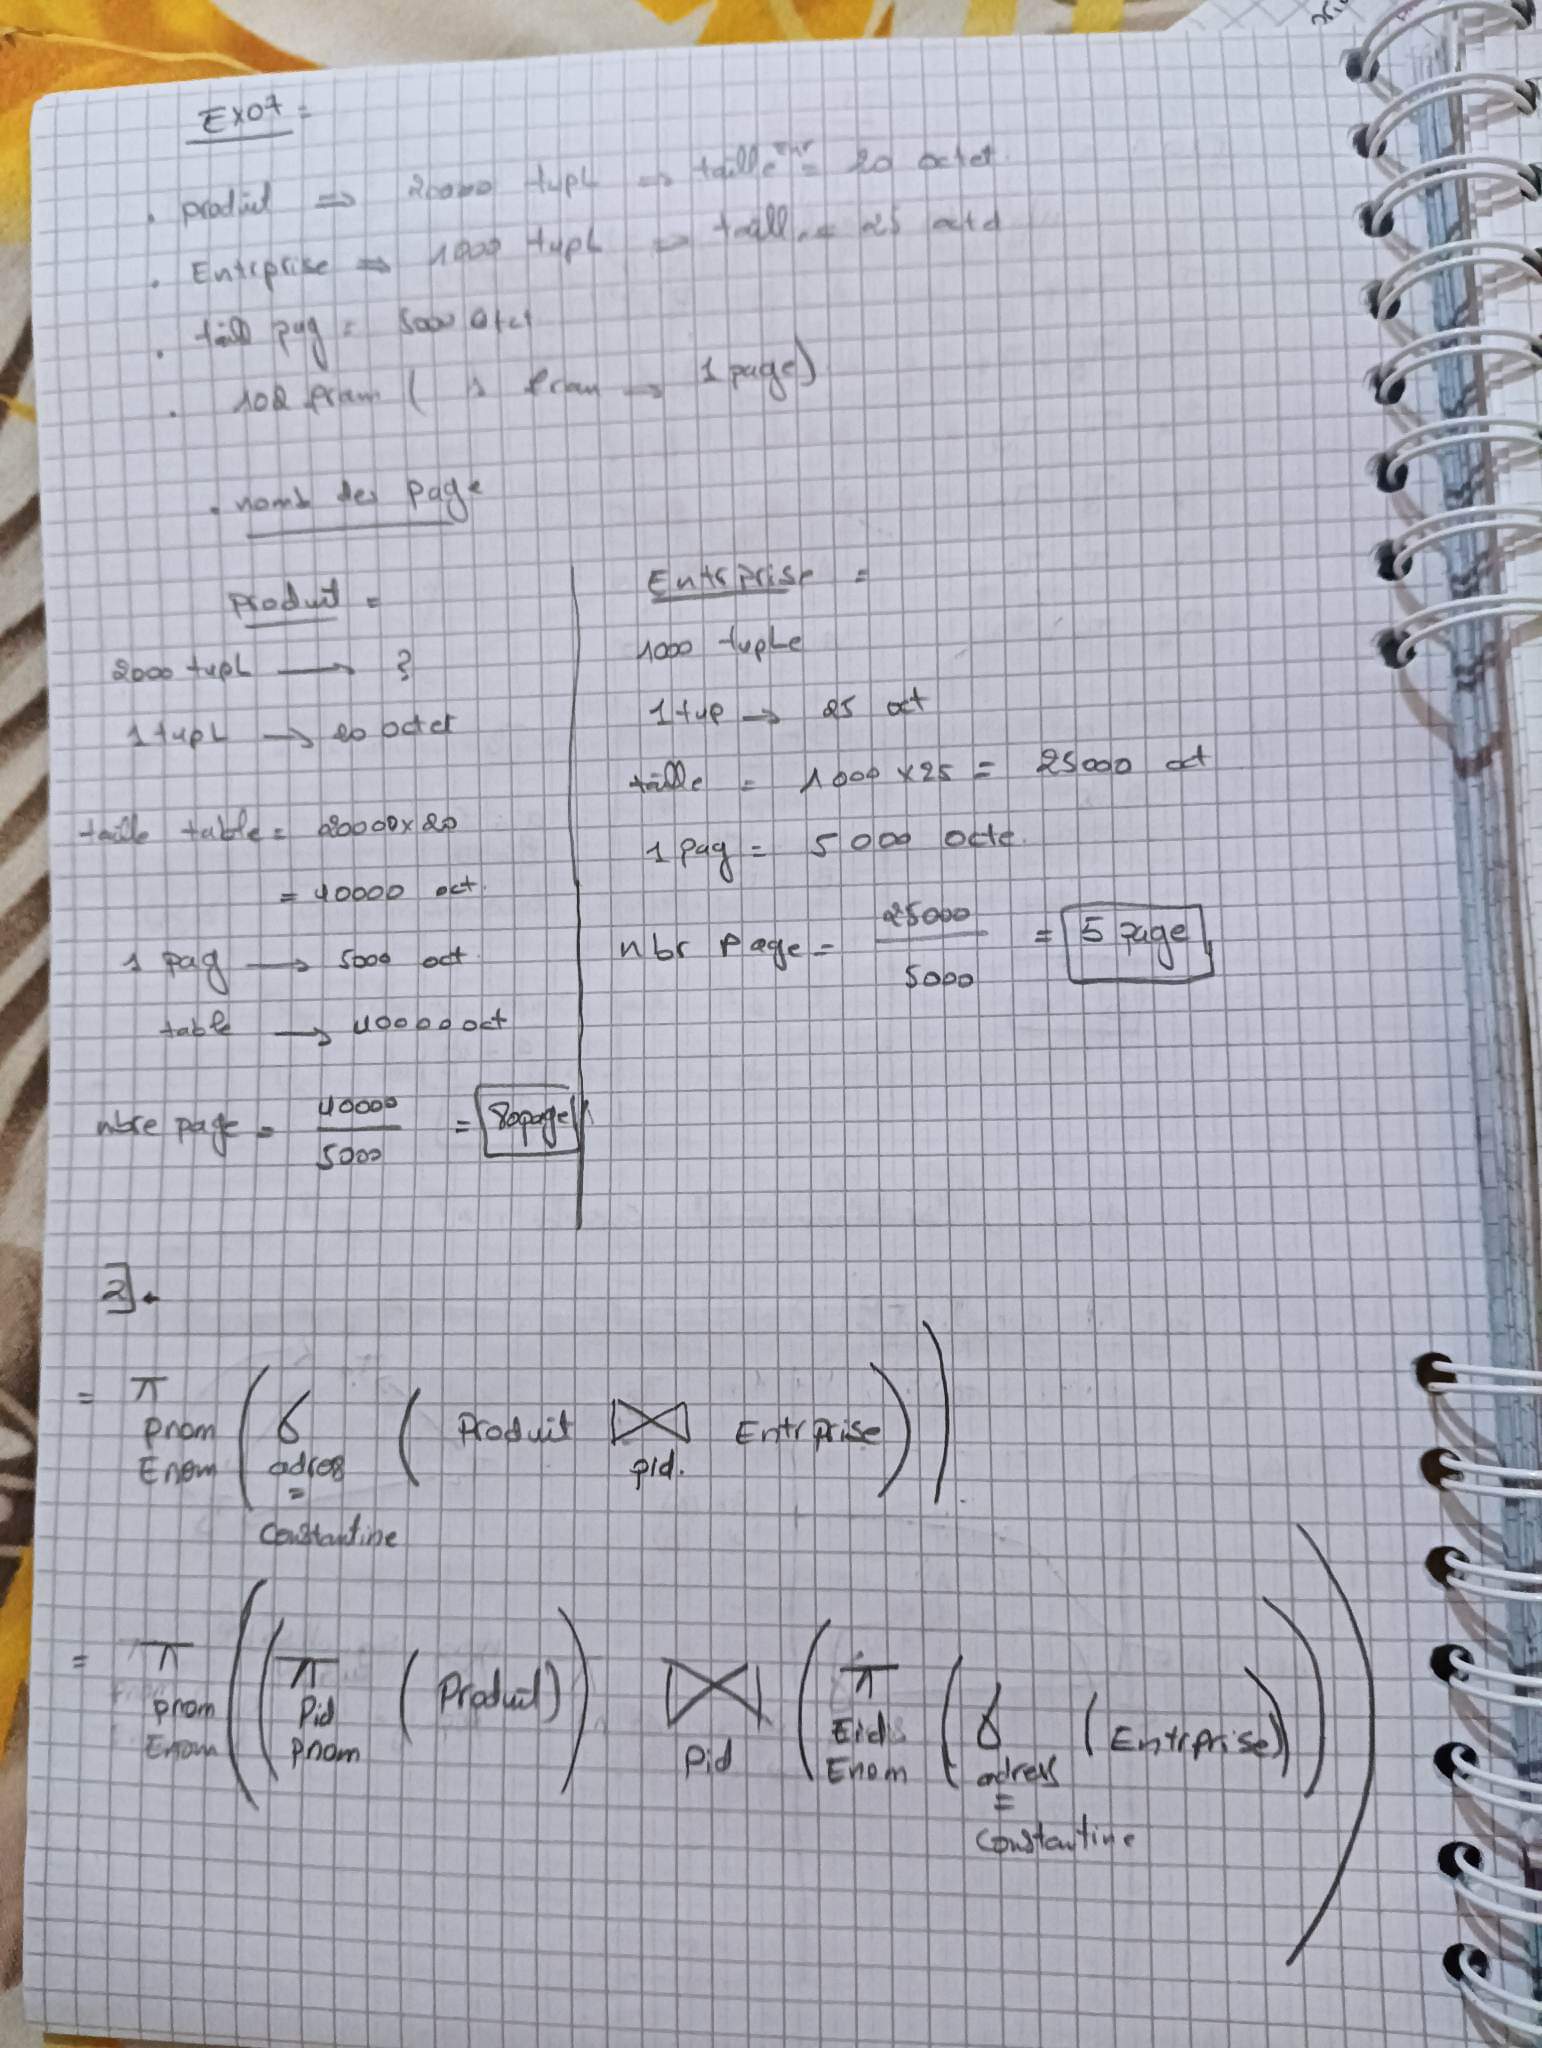 Exo7 =
. produit => 20000 tupL => taille = 20 octet.
. Entrprise => 1000 tupL => taill = 25 octd
. taill pag = 5000 Otct
. 102 fram ( 1 fram -> 1 page)
. nomb des page
Produit =
2000 tupL -> ?
1 tupL -> 20 octet
taille table = 20000 x 20
= 40000 oct.
1 pag -> 5000 oct.
table -> 40000 oct
nbre page = 40000 / 5000 = 80page
Entrprise =
1000 tupLe
1 tup -> 25 oct
taille = 1000 x 25 = 25000 oct
1 pag = 5000 octe.
nbr Page = 25000 / 5000 = 5 page
2].
= π pnom Enom ( σ adress = Constantine ( Produit ⋈ pid. Entrprise ) )
= π pnom Enom ( ( π Pid pnom ( Produit ) ) ⋈ Pid ( π Eid Enom ( σ adress = Constantine ( Entrprise ) ) ) )